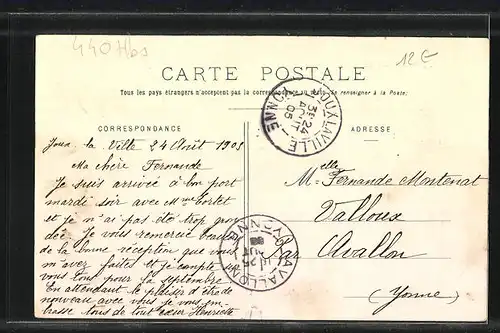 440Hbs
12€
CARTE POSTALE
Tous les pays étrangers n'acceptent pas la correspondance au recto. Se renseigner à la Poste.
JOUX-LA-VILLE
YONNE
3E
24
AOUT
05
CORRESPONDANCE
ADRESSE
Joux la Ville 24 Août 1905
Ma chère Fernande
Je suis arrivée à bon port
mardi soir avec Mme
et je n'ai pas été trop
Je vous remercie
de la bonne réception que vous
m'avez faite et je compte sur
vous tous pour la septembre
En attendant le plaisir d'être de
nouveau avec vous je vous em-
brasse tous de tout cœur Henriette
Melle Fernande Montenat
Valloux
Par Avallon
(Yonne)
AVALLON
YONNE